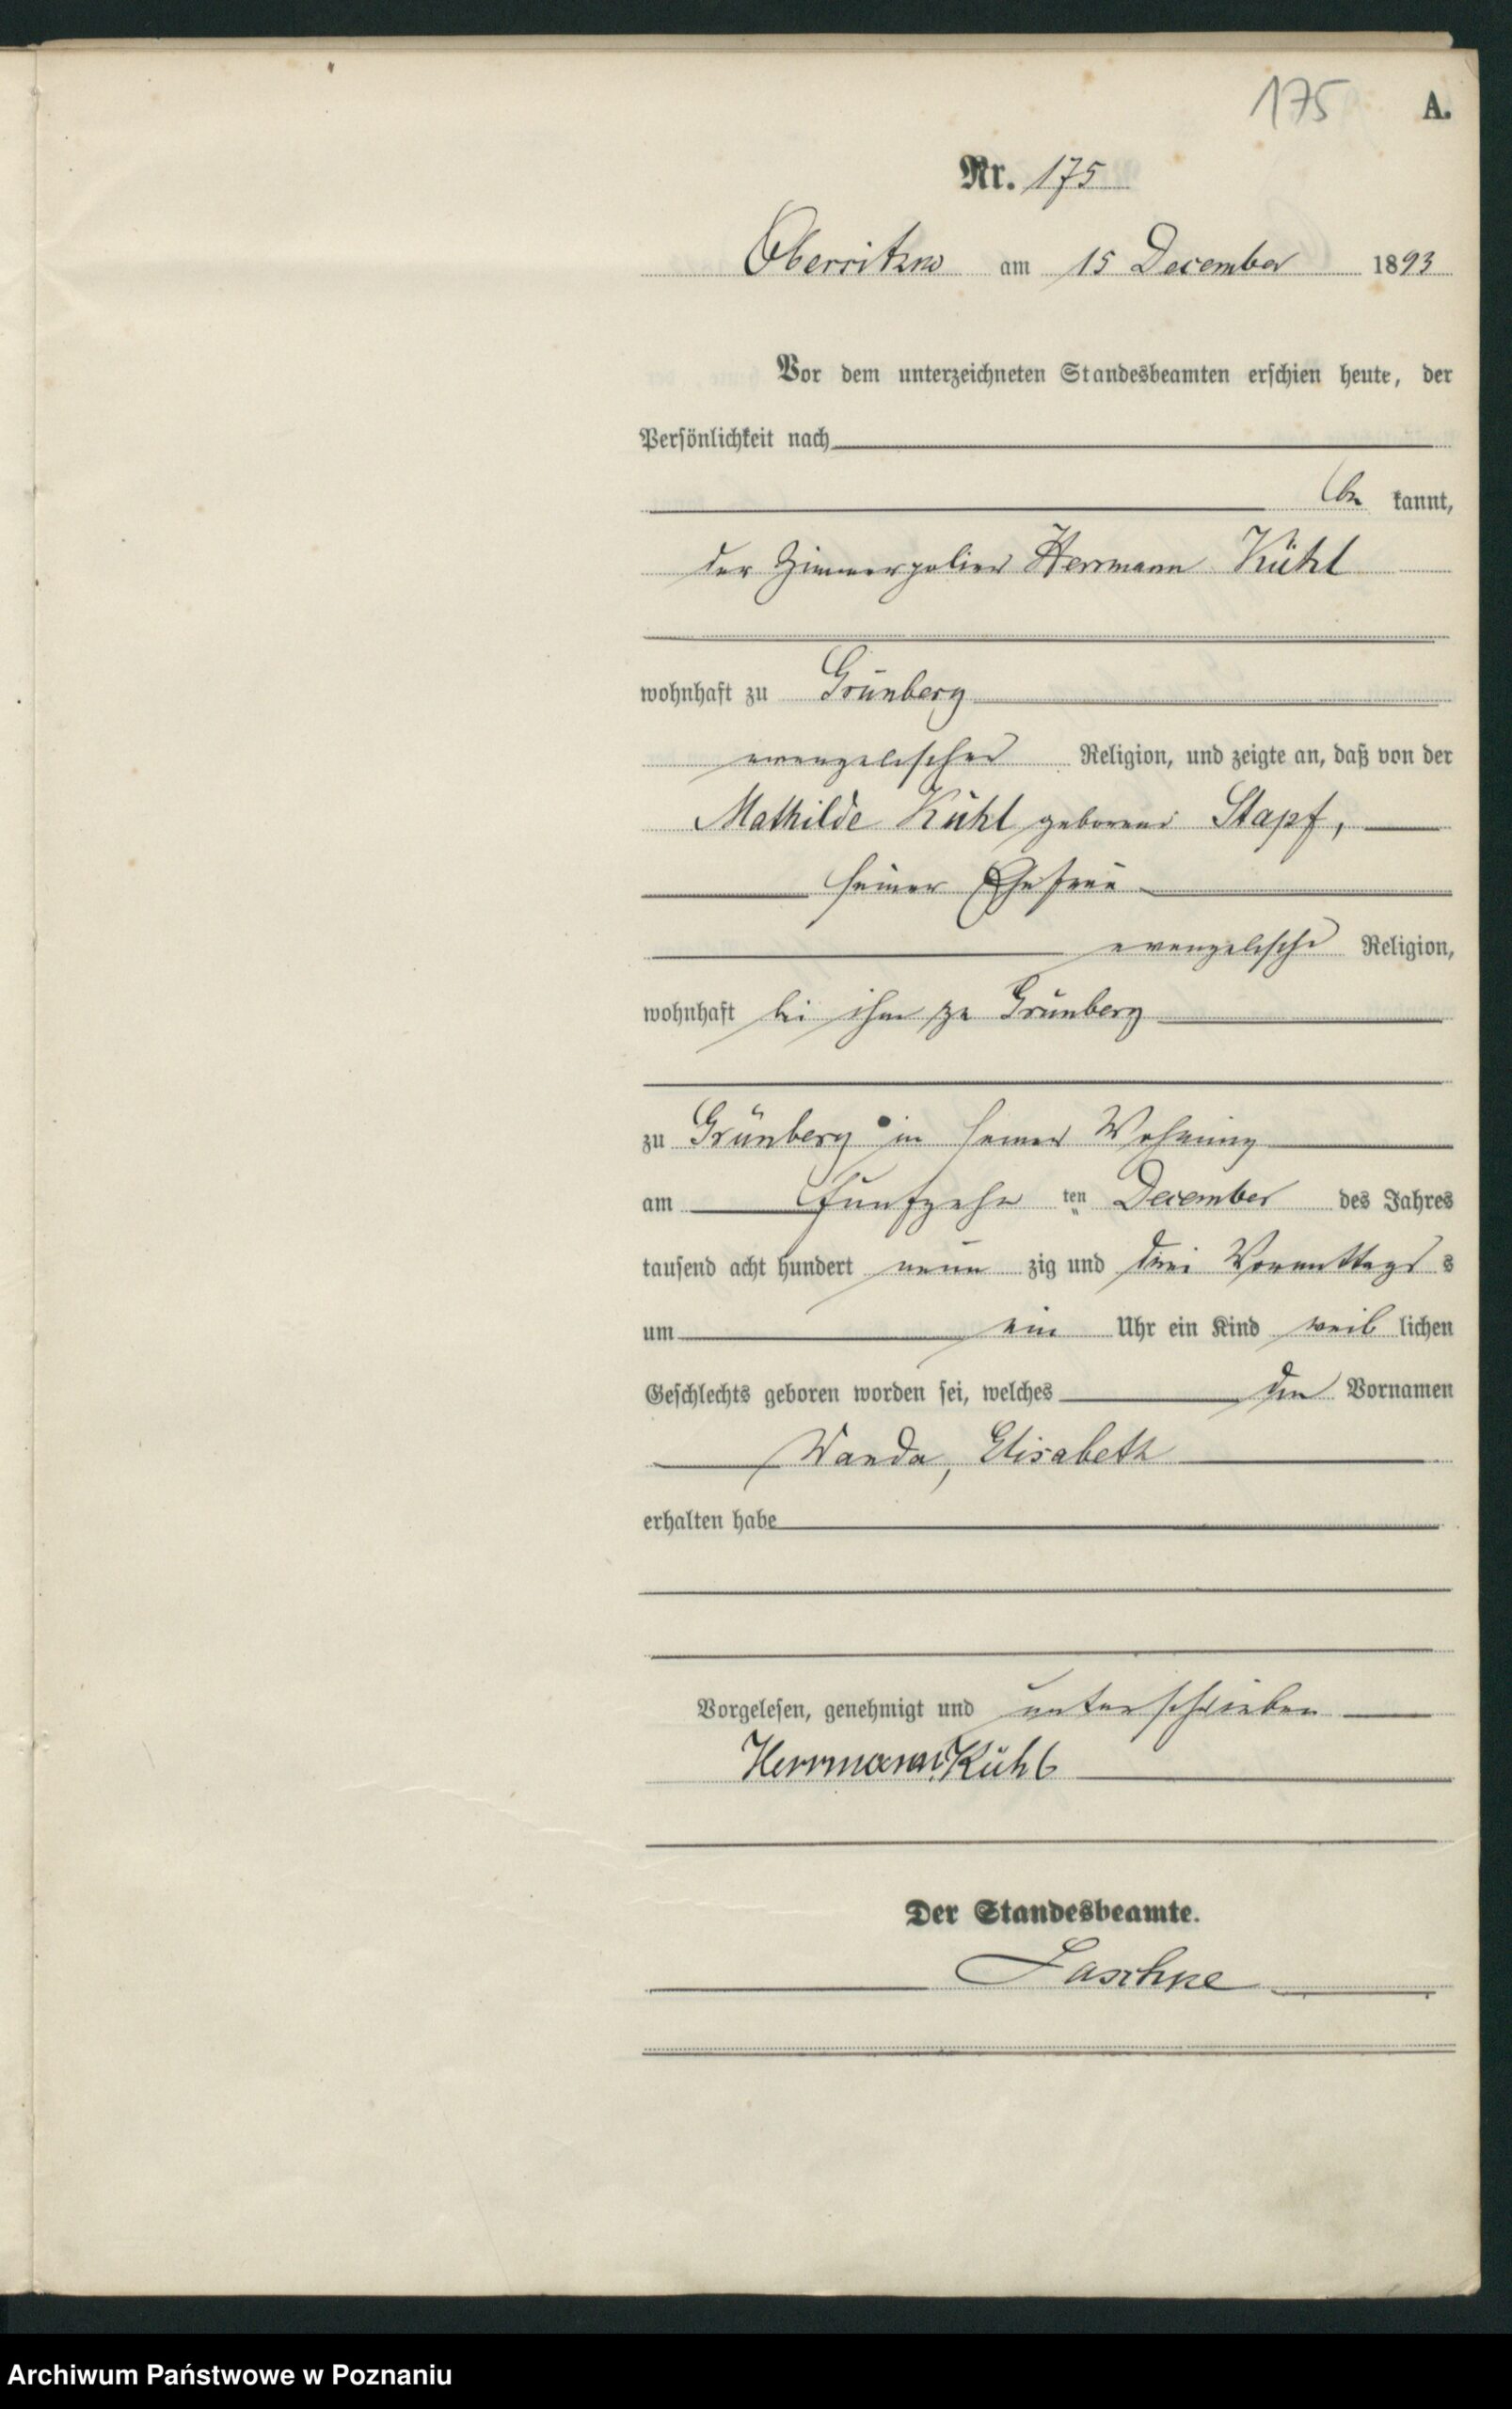 175 A.
Nr. 175
Oberritzko am 15 December 1893
Vor dem unterzeichneten Standesbeamten erschien heute, der
Persönlichkeit nach
be kannt,
der Zimmerpolier Herrmann Kühl
wohnhaft zu Grünberg
evangelischer Religion, und zeigte an, daß von der
Mathilde Kühl geborene Stapf,
seiner Ehefrau
evangelischer Religion,
wohnhaft bei ihm zu Grünberg
zu Grünberg in seiner Wohnung
am fünfzehn ten December des Jahres
tausend acht hundert neun zig und drei Vormittags s
um ein Uhr ein Kind weib lichen
Geschlechts geboren worden sei, welches den Vornamen
Wanda, Elisabeth
erhalten habe
Vorgelesen, genehmigt und unterschrieben
Herrmann Kühl
Der Standesbeamte.
Laschke
Archiwum Państwowe w Poznaniu